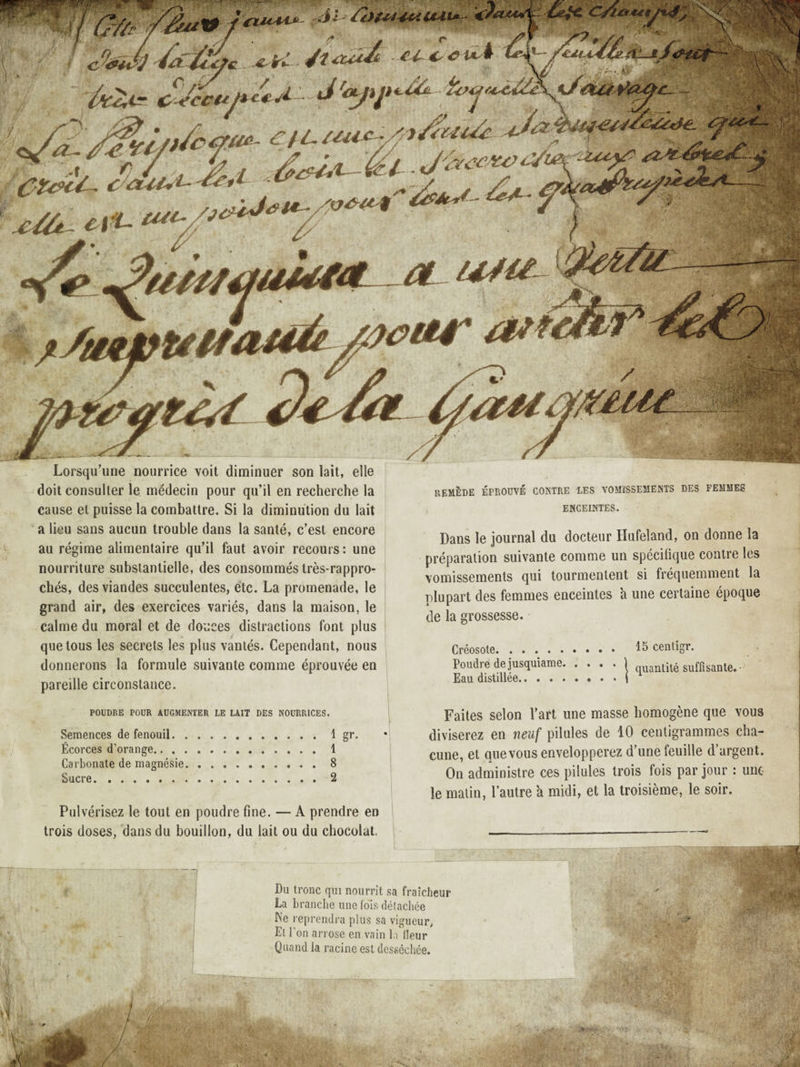 Cette fleur jaune si commune dans les champs,
dont la tige est haute et dont les feuilles sont
très découpées s'appelle roquette sauvage.
La Periploque est une plante laiteuse qui
croît dans les bois et s'accroche aux arbres;
elle est un poison pour tous les quadrupèdes
Le Quinquina a une vertu
surprenante pour arrêter les
progrès de la Gangrène
Lorsqu'une nourrice voit diminuer son lait, elle
doit consulter le médecin pour qu'il en recherche la
cause et puisse la combattre. Si la diminution du lait
a lieu sans aucun trouble dans la santé, c'est encore
au régime alimentaire qu'il faut avoir recours: une
nourriture substantielle, des consommés très-rappro-
chés, des viandes succulentes, etc. La promenade, le
grand air, des exercices variés, dans la maison, le
calme du moral et de douces distractions font plus
que tous les secrets les plus vantés. Cependant, nous
donnerons la formule suivante comme éprouvée en
pareille circonstance.
POUDRE POUR AUGMENTER LE LAIT DES NOURRICES.
Semences de fenouil. . . . . . . . . . . . 1 gr.
Écorces d'orange. . . . . . . . . . . . . . 1
Carbonate de magnésie. . . . . . . . . . . 8
Sucre. . . . . . . . . . . . . . . . . . . 2
Pulvérisez le tout en poudre fine. — A prendre en
trois doses, dans du bouillon, du lait ou du chocolat.
REMÈDE ÉPROUVÉ CONTRE LES VOMISSEMENTS DES FEMMES
ENCEINTES.
Dans le journal du docteur Hufeland, on donne la
préparation suivante comme un spécifique contre les
vomissements qui tourmentent si fréquemment la
plupart des femmes enceintes à une certaine époque
de la grossesse.
Créosote. . . . . . . . . . 15 centigr.
Poudre de jusquiame. . . . . } quantité suffisante.
Eau distillée. . . . . . . . }
Faites selon l'art une masse homogène que vous
diviserez en neuf pilules de 10 centigrammes cha-
cune, et que vous envelopperez d'une feuille d'argent.
On administre ces pilules trois fois par jour : une
le matin, l'autre à midi, et la troisième, le soir.
Du tronc qui nourrit sa fraîcheur
La branche une fois détachée
Ne reprendra plus sa vigueur,
Et l'on arrose en vain la fleur
Quand la racine est desséchée.